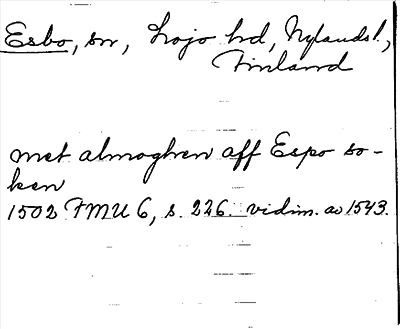 Esbo, sn, Lojo hd, Nylands l.,
Finland
met almoghen aff Espo so-
ken
1502 FMU 6, s. 226. vidim. av 1543.